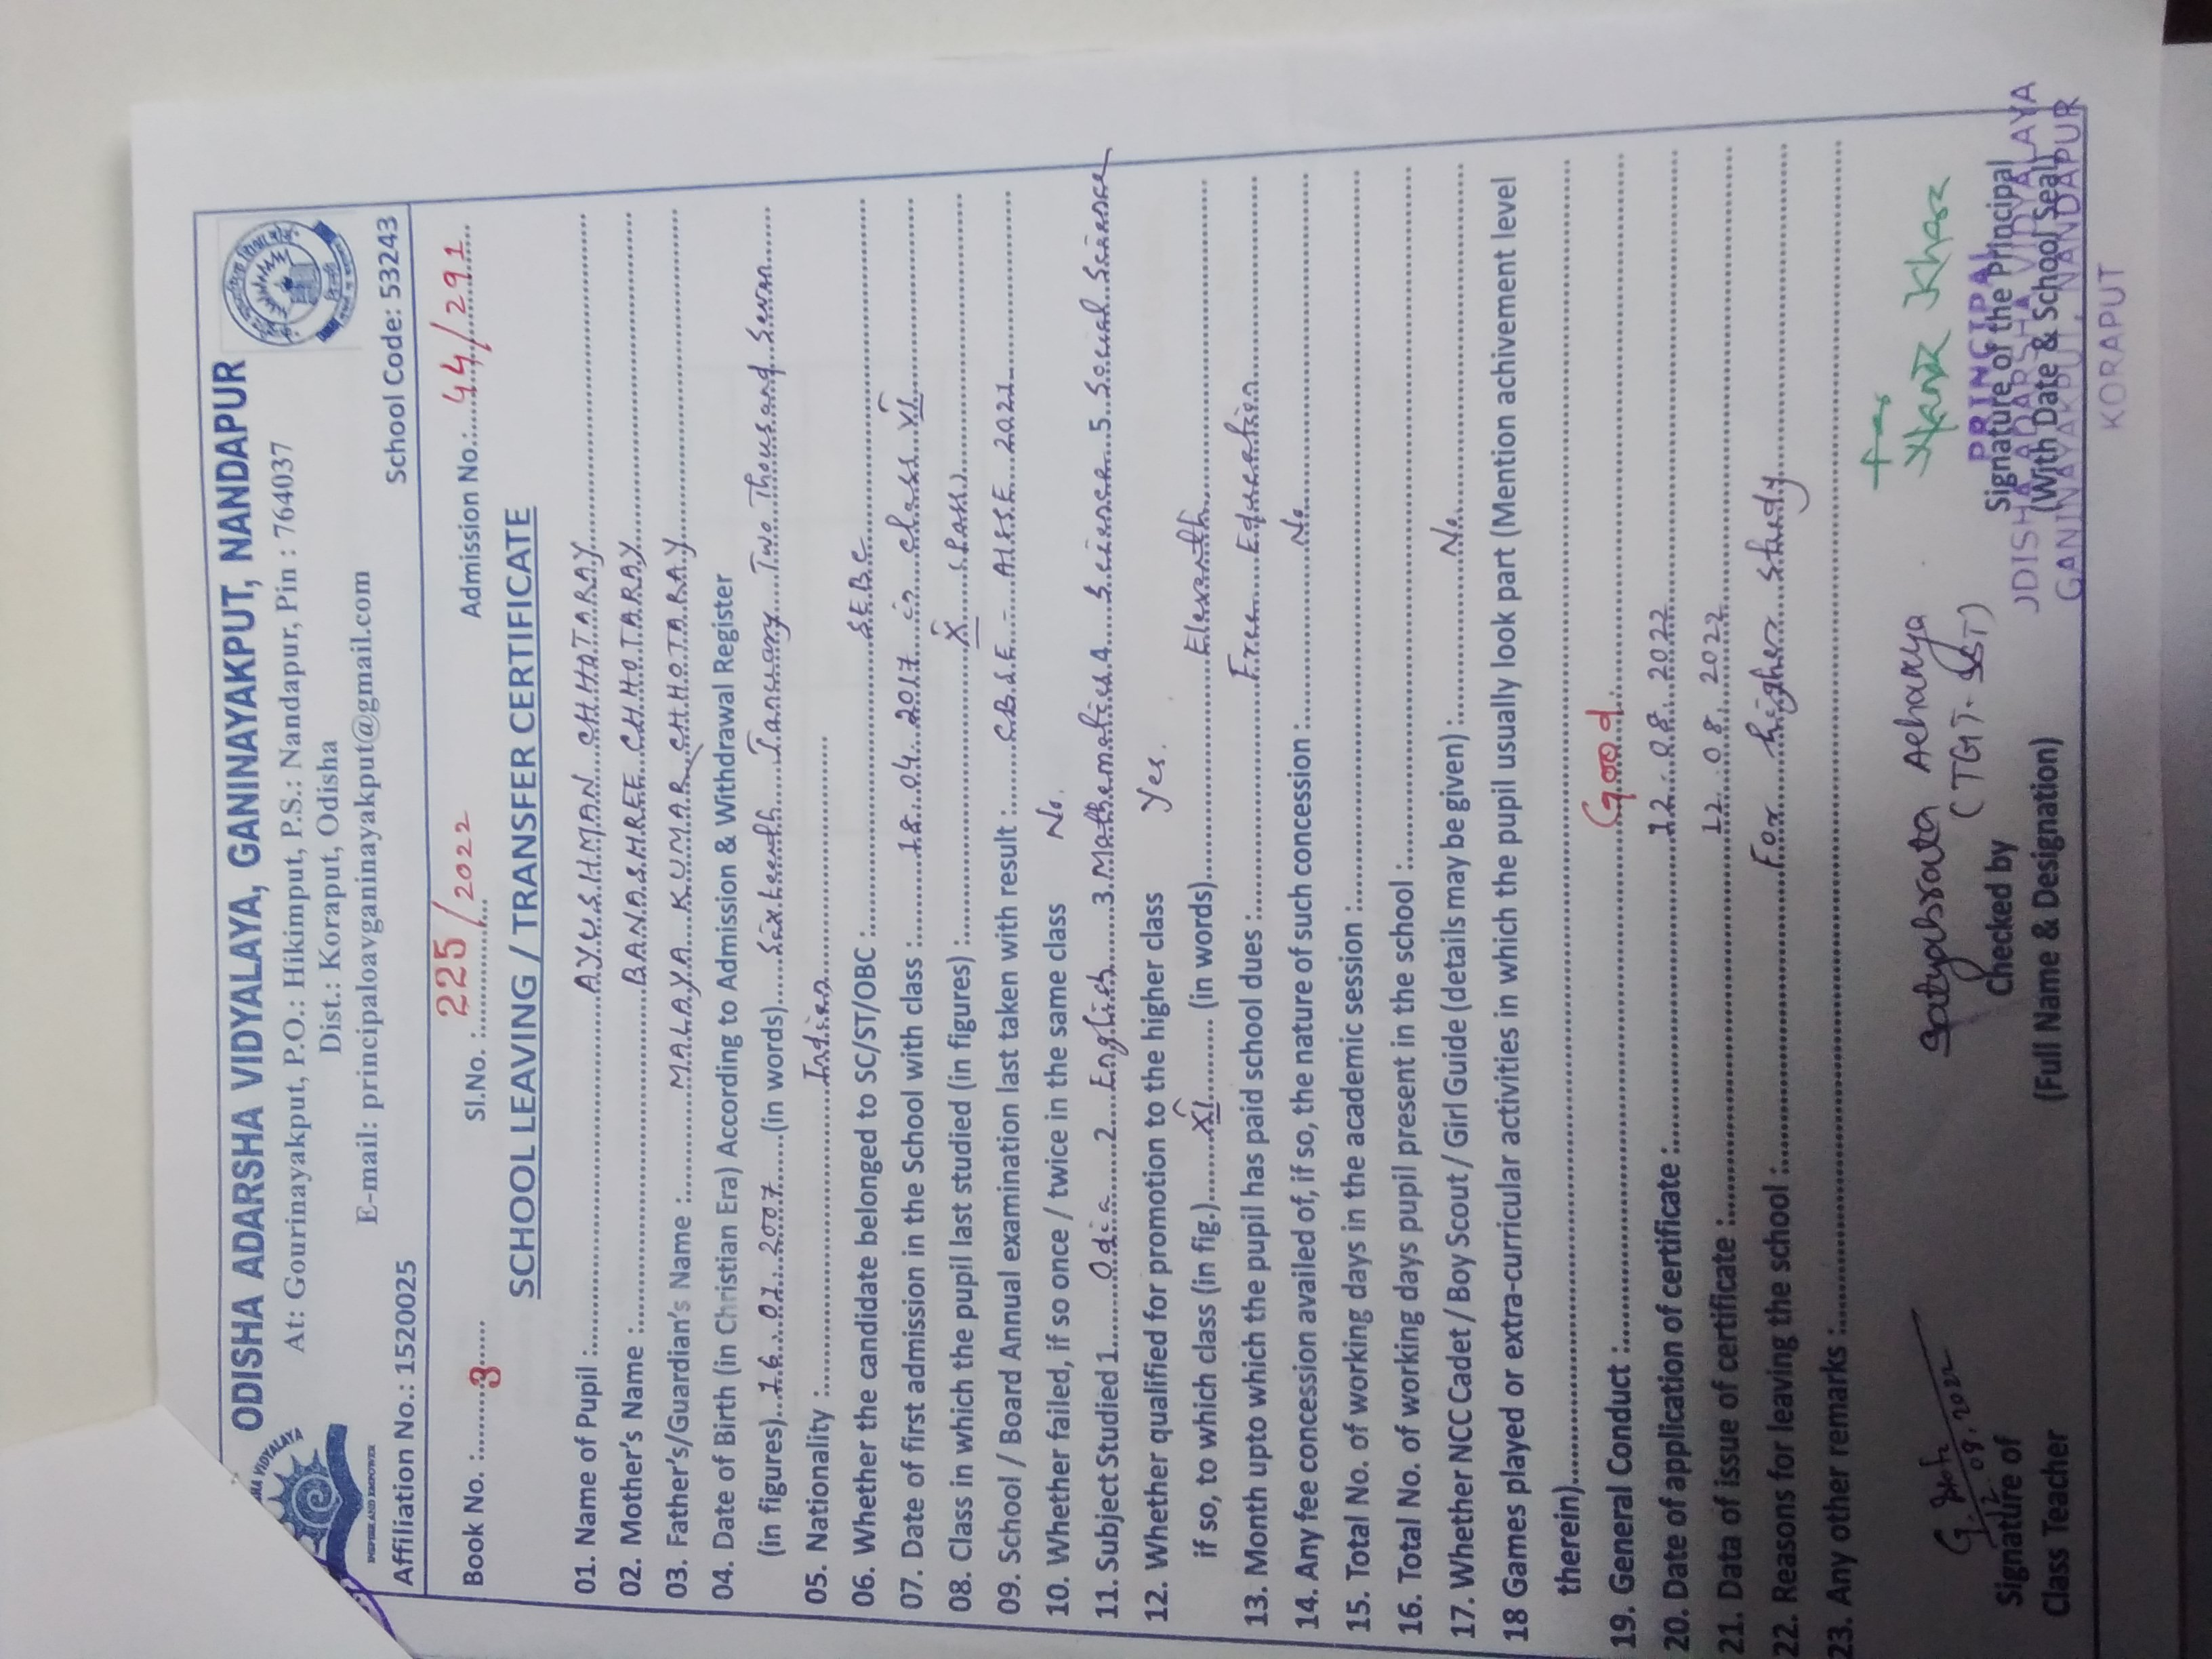 ODISHA ADARSHA VIDYALAYA, GANINAYAKPUT, NANDAPUR
At: Gourinayakput, P.O.: Hikimput, P.S.: Nandapur, Pin : 764037
Dist.: Koraput, Odisha
E-mail: principaloavganinayakput@gmail.com
VIDYALAYA
INSPIRE AND EMPOWER
Affiliation No.: 1520025 School Code: 53243
Book No. : 3 Sl.No. : 225/2022 Admission No.: 44/291
SCHOOL LEAVING / TRANSFER CERTIFICATE
01. Name of Pupil : AYUSHMAN CHHOTARAY
02. Mother's Name : BANASHREE CHHOTARAY
03. Father's/Guardian's Name : MALAYA KUMAR CHHOTARAY
04. Date of Birth (in Christian Era) According to Admission & Withdrawal Register
(in figures) 16.01.2007 (in words) Sixteenth January Two Thousand Seven
05. Nationality : Indian
06. Whether the candidate belonged to SC/ST/OBC : SEBC
07. Date of first admission in the School with class : 18.04.2017 in class VI
08. Class in which the pupil last studied (in figures) : X (Pass)
09. School / Board Annual examination last taken with result : CBSE - AISSE 2022
10. Whether failed, if so once / twice in the same class No.
11. Subject Studied 1 Odia 2 English 3 Mathematics 4 Science 5 Social Science
12. Whether qualified for promotion to the higher class Yes.
if so, to which class (in fig.) XI (in words) Eleventh
13. Month upto which the pupil has paid school dues : Free Education
14. Any fee concession availed of, if so, the nature of such concession : No
15. Total No. of working days in the academic session :
16. Total No. of working days pupil present in the school :
17. Whether NCC Cadet / Boy Scout / Girl Guide (details may be given) : No
18 Games played or extra-curricular activities in which the pupil usually look part (Mention achivement level
therein)
19. General Conduct : Good
20. Date of application of certificate : 12.08.2022
21. Data of issue of certificate : 12.08.2022
22. Reasons for leaving the school : For higher study
23. Any other remarks :
Satyabrata Acharya
(TGT. SST)
Signature of
Class Teacher
Checked by
(Full Name & Designation)
Signature of the Principal
(With Date & School Seal)
PRINCIPAL
ODISHA ADARSHA VIDYALAYA
GANINAYAKPUT, NANDAPUR
KORAPUT